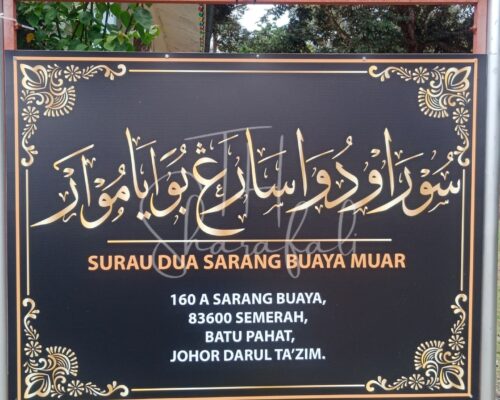 سُوْرَاو دُوَا سَارَڠ بُوَايَا مُوْوَرْ
TM Sharafali
SURAU DUA SARANG BUAYA MUAR
160 A SARANG BUAYA,
83600 SEMERAH,
BATU PAHAT,
JOHOR DARUL TA'ZIM.